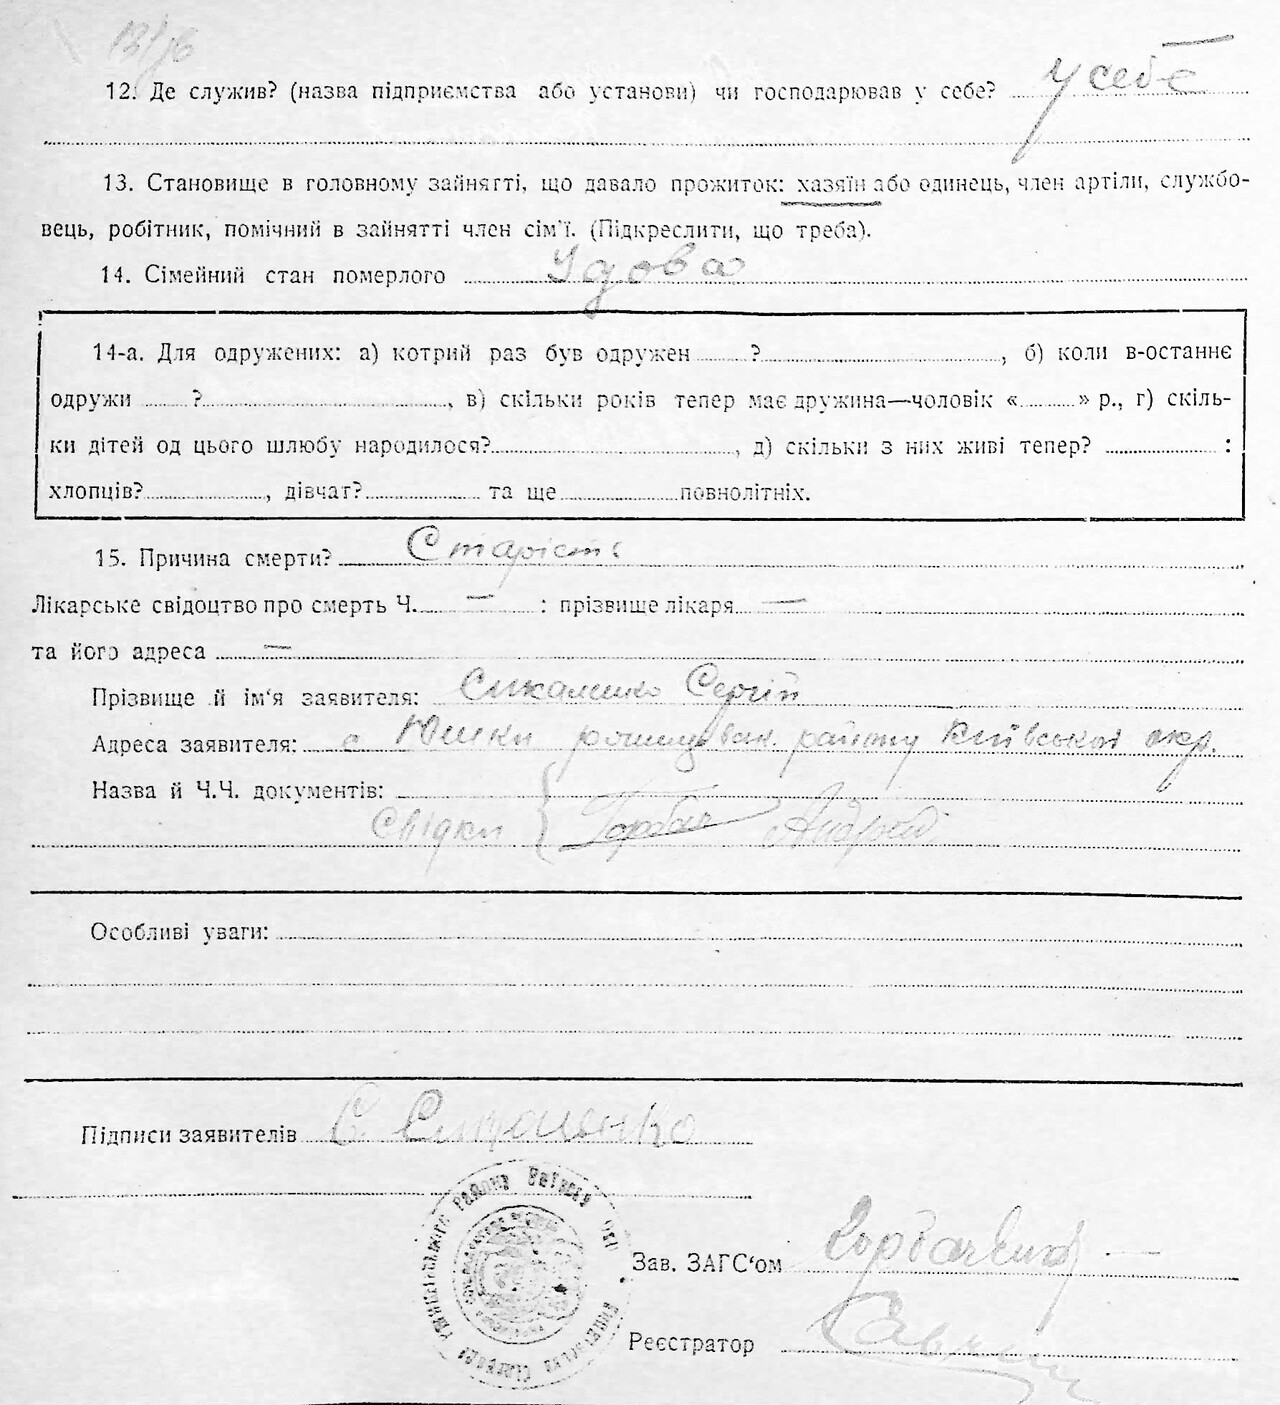 12. Де служив? (назва підприємства або установи) чи господарював у себе? у себе
13. Становище в головному зайнятті, що давало прожиток: хазяїн або одинець, член артіли, службо-
вець, робітник, помічний в зайнятті член сім'ї. (Підкреслити, що треба).
14. Сімейний стан померлого Удова
14-а. Для одружених: а) котрий раз був одружен ? , б) коли в-останнє
одружи ? , в) скільки років тепер має дружина—чоловік « » р., г) скіль-
ки дітей од цього шлюбу народилося? , д) скільки з них живі тепер? :
хлопців? , дівчат? та ще повнолітніх.
15. Причина смерти? Старість
Лікарське свідоцтво про смерть Ч. — : прізвище лікаря —
та його адреса —
Прізвище й ім'я заявителя: Сергій
Адреса заявителя: с Юшки району Київської окр.
Назва й Ч.Ч. документів:
Свідки { Горбач Андрей
Особливі уваги:
Підписи заявителів С.
Зав. ЗАГС'ом
Реєстратор